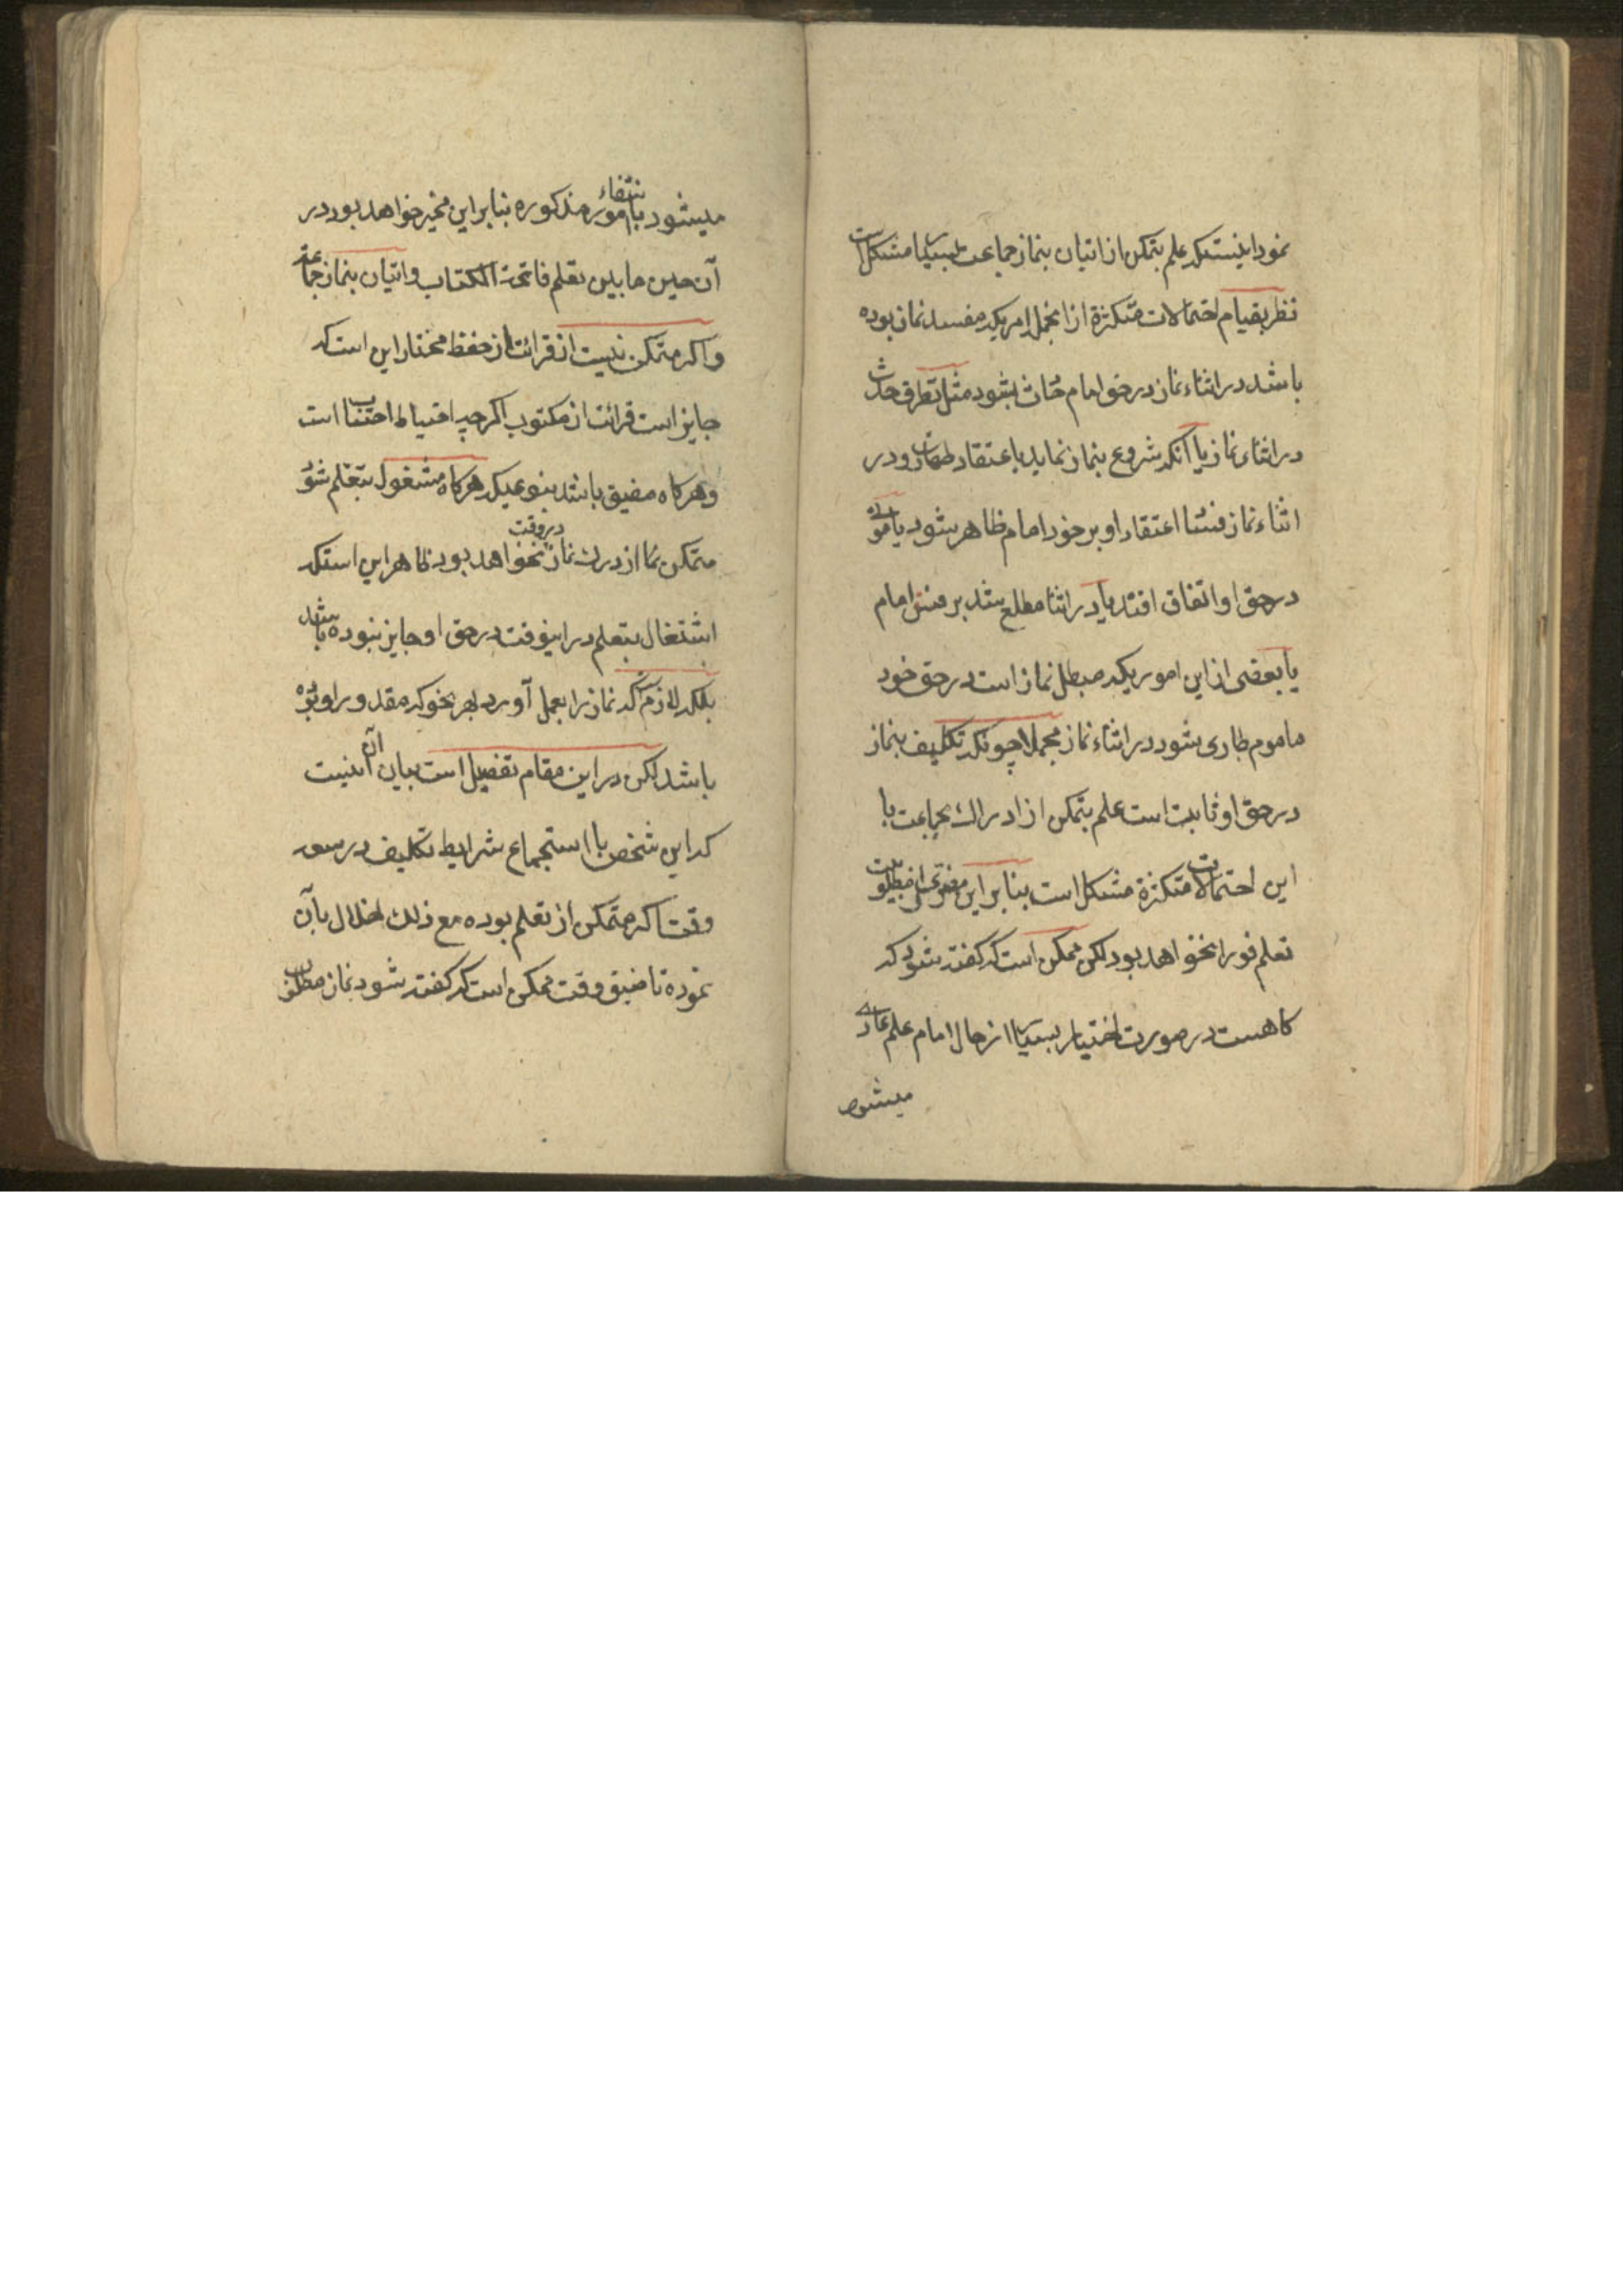 نمود اینستکه علم بتمکن از اتیان بنماز جماعت بسیار مشکل است
نظر بقیام احتمالات متکثرة از انجمله امریکه مفسد نماز بوده
باشد در اثناء نماز در حق امام حادث بشود مثل تطرق حدث
در اثناء نماز یا آنکه شروع بنماز نماید باعتقاد طهارت و در
اثناء نماز فساد اعتقاد او بر خود امام ظاهر شود یا موت
در حق او اتفاق افتد یا در اثنا مطلع شد بر فسق امام
یا بعضی از این امور یکه مبطل نماز است در حق خود
ماموم طاری شود در اثناء نماز مجملا چونکه تکلیف بنماز
در حق او ثابت است علم بتمکن از ادراك جماعت با
این احتمالات متکثرة مشکل است بنابراین مفری از مطلوبیت
تعلم فورا نخواهد بود لکن ممکن است که گفته شود که
گاهست در صورت اختیار بسیار از حال امام علم عادی
میشود
میشود بانتفاء امور مذکوره بنابراین مخیر خواهد بود در
آن حین مابین تعلم فاتحة الکتاب و اتیان بنماز جماعة
و اگر متمکن نیست از قرائت از حفظ مختار این است که
جایز است قرائت از مکتوب اگر چه احتیاط اجتناب است
و هر گاه مضیق باشد بنوعیکه هر گاه مشغول بتعلم شود
متمکن از درك نماز در وقت نخواهد بود ظاهر این استکه
اشتغال بتعلم در اینوقت در حق او جایز نبوده باشد
بلکه لازم است که نماز را بعمل آورد بهر نحو که مقدور او بوده
باشد لکن در این مقام تفصیل است بیان آن اینست
که این شخص با استجماع شرایط تکلیف در سعه
وقت که متمکن از تعلم بوده مع ذلك اخلال بآن
نموده تا ضیق وقت ممکن است که گفته شود نماز مطلوب